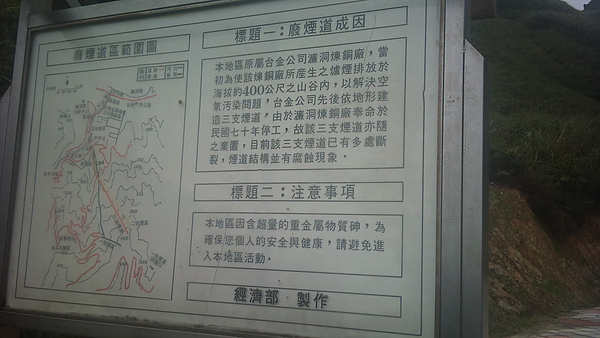 廢煙道區範圍圖
標題一：廢煙道成因
本地區原屬台金公司濂洞煉銅廠，當
初為使該煉銅廠所產生之爐煙排放於
海拔約400公尺之山谷內，以解決空
氣污染問題，台金公司先後依地形建
造三支煙道，由於濂洞煉銅廠奉命於
民國七十年停工，故該三支煙道亦隨
之棄置，目前該三支煙道已有多處斷
裂，煙道結構並有腐蝕現象。
標題二：注意事項
本地區因含超量的重金屬物質砷，為
確保您個人的安全與健康，請避免進
入本地區活動。
經濟部 製作